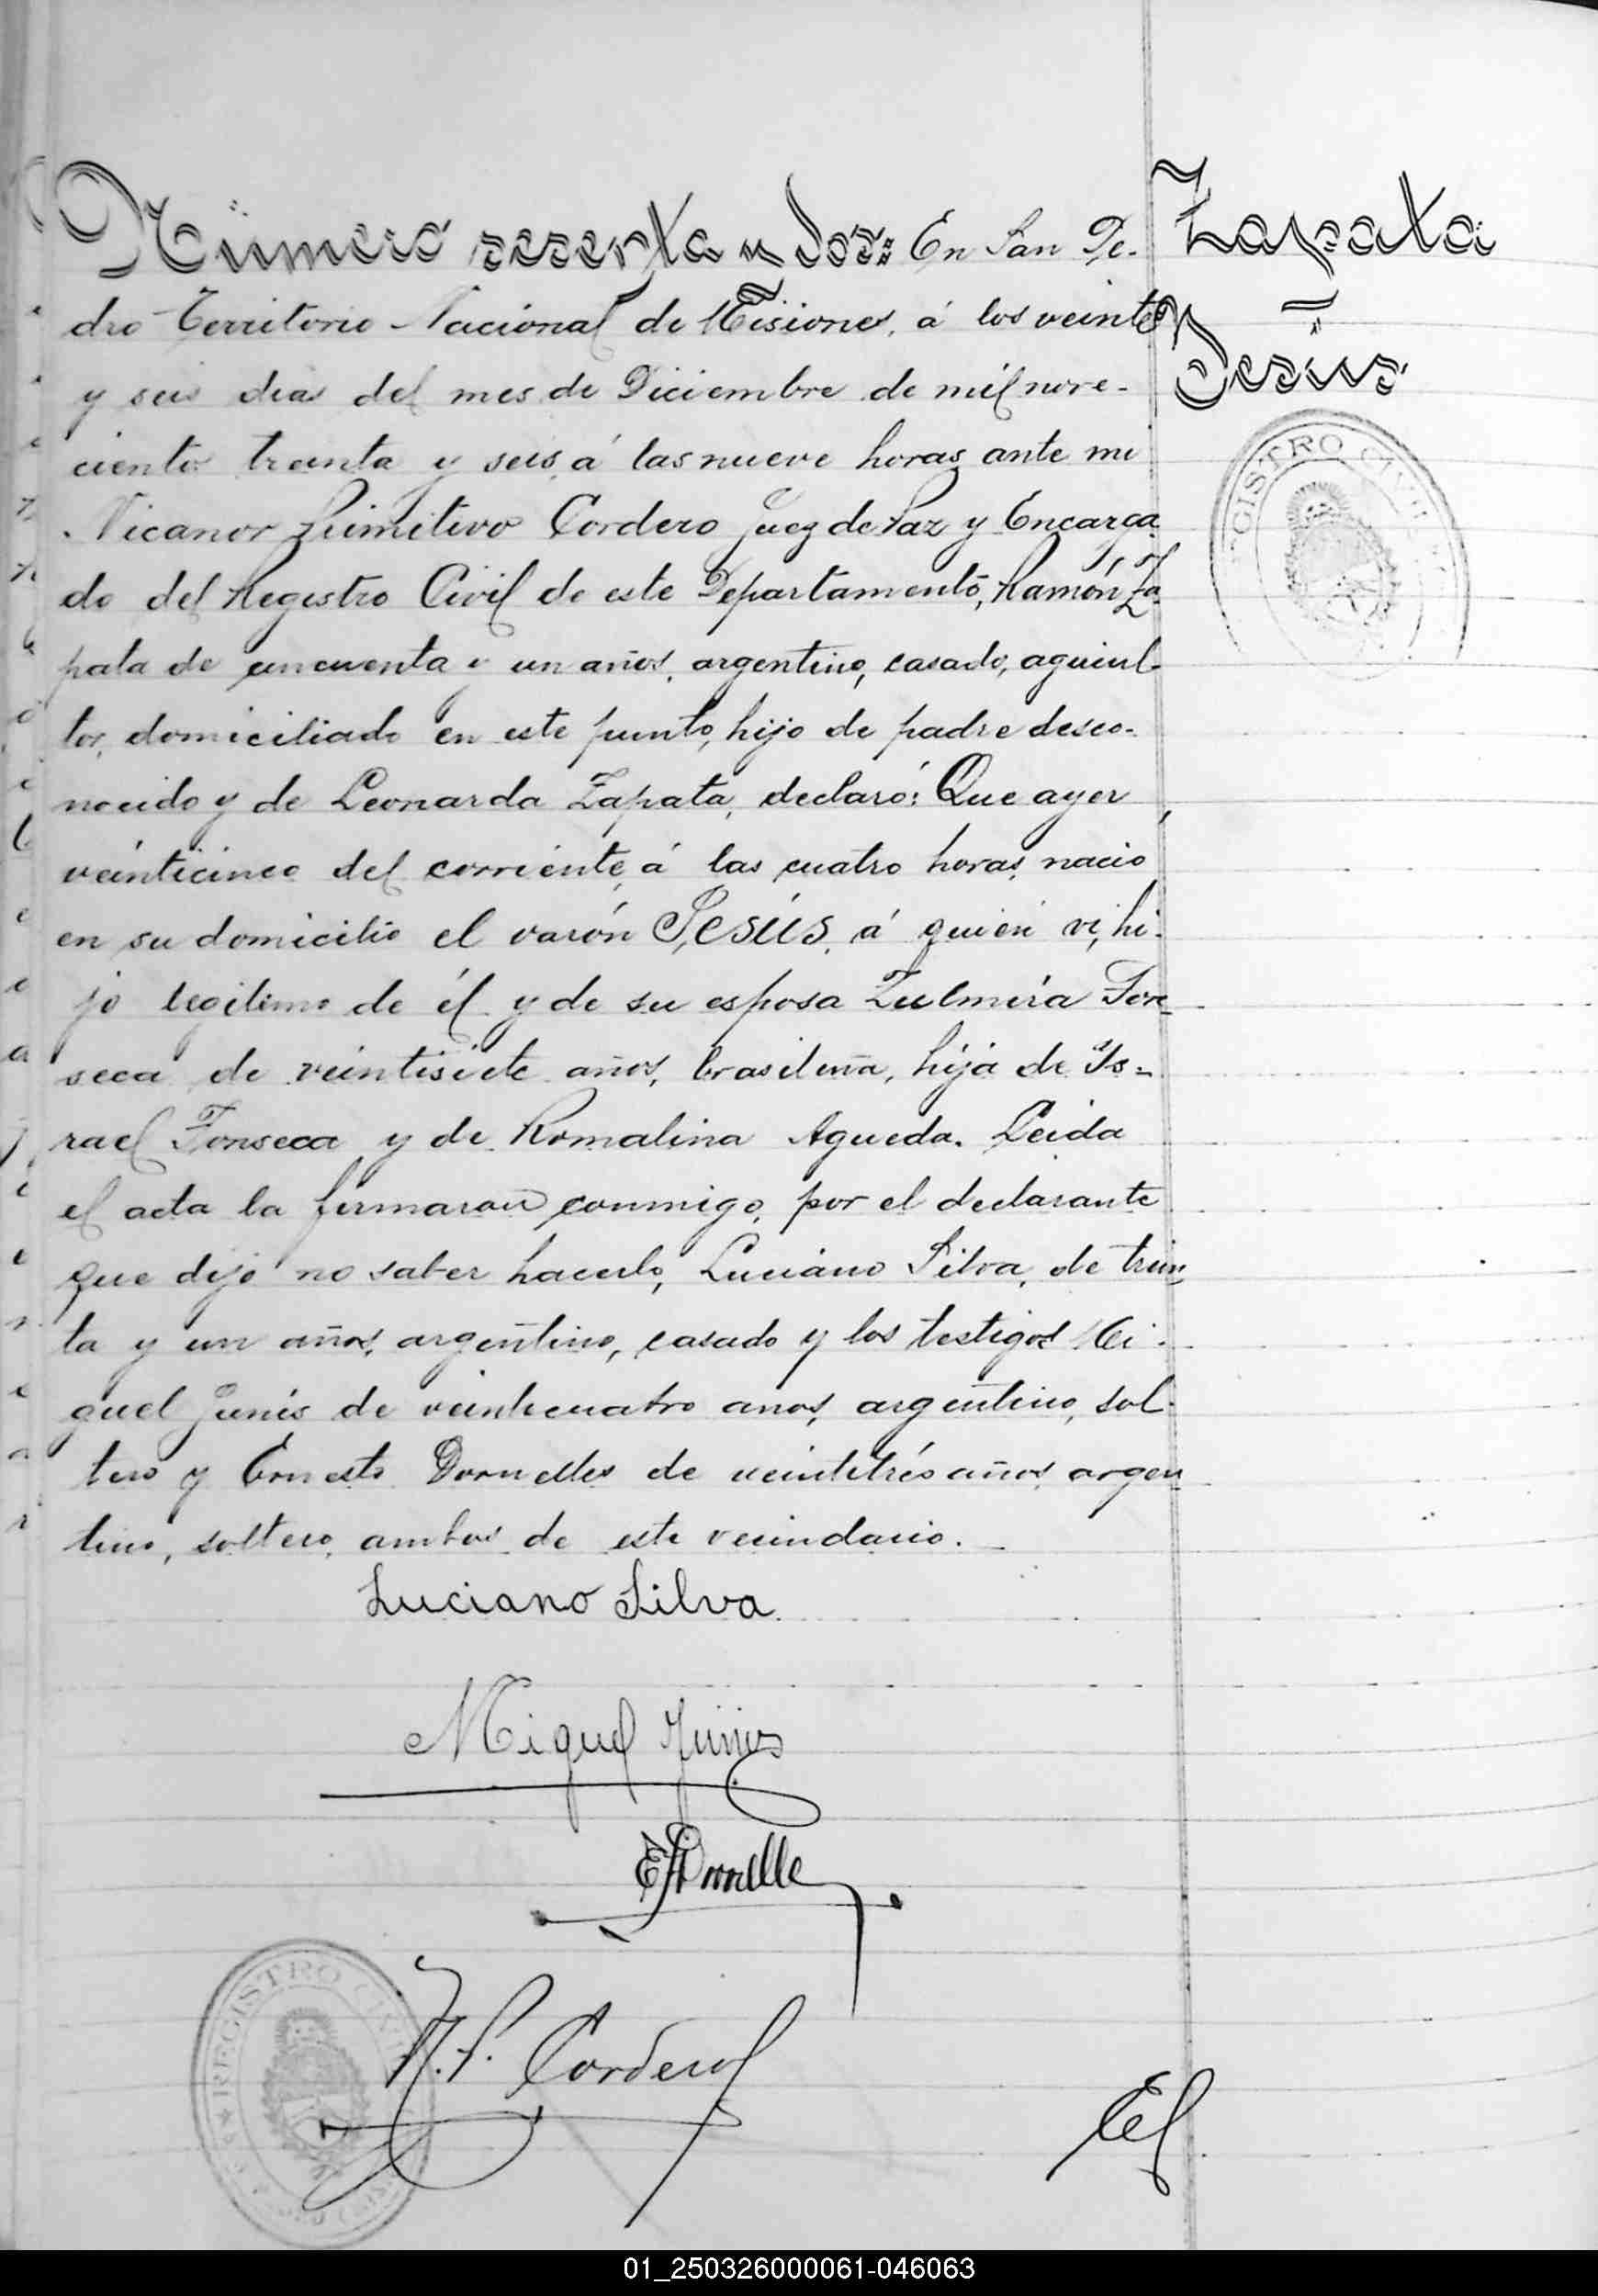 Número sesenta y dos: En San Pe-
dro Territorio Nacional de Misiones, á los veinte
y seis dias del mes de Diciembre de mil nove-
cientos treinta y seis, á las nueve horas, ante mi
Nicanor Primitivo Cordero Juez de Paz y Encarga
do del Registro Civil de este Departamento, Ramón Za-
pata de cincuenta y un años, argentino, casado, agricul-
tor, domiciliado en este punto, hijo de padre desco-
nocido y de Leonarda Zapata, declaró: Que ayer
veinticinco del corriente, á las cuatro horas, nacio
en su domicilio el varón JESÚS, á quien vi, hi-
jo legitimo de él y de su esposa Zulmira Fon
seca de veintisiete años, brasileña, hija de Is-
rael Fonseca y de Romalina Agueda. Leida
el acta la firmaron conmigo, por el declarante
que dijo no saber hacerlo, Luciano Silva, de trein
ta y un años, argentino, casado y los testigos Mi-
guel Junis de veinticuatro anos, argentino, sol-
tero y Ernesto Dornelles de veintitrés años, argen
tino, soltero, ambos de este vecindario.
Luciano Silva
Miguel Junis
E Dornelle
N. P. Cordero
Zapata
Jesús
REGISTRO CIVIL
REGISTRO CIVIL
01_250326000061-046063